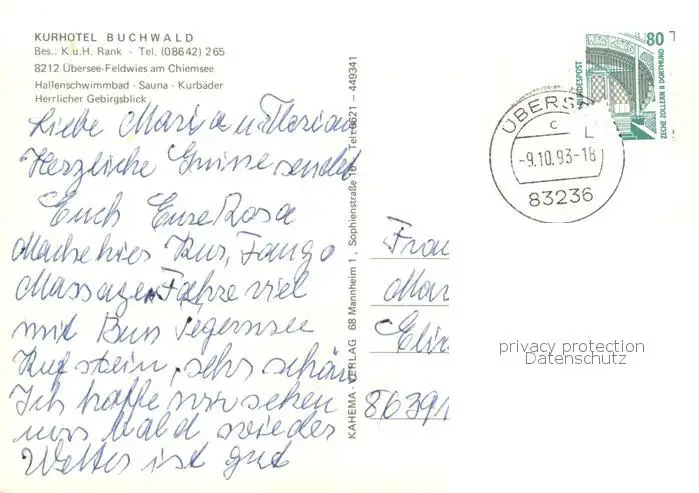 KURHOTEL BUCHWALD
Bes.: K.u.H. Rank - Tel. (08642) 265
8212 Übersee-Feldwies am Chiemsee
Hallenschwimmbad - Sauna - Kurbäder
Herrlicher Gebirgsblick
Liebe Maria u Florian
Herzliche Grüsse sendet
Euch Eure Rosa
Mache hier Kur, Fango
Massagen Fahre viel
mit Bus Tegernsee
Kufstein, sehr schön
Ich hoffe wir sehen
uns bald wieder
Wetter ist gut
KAHEMA-VERLAG 68 Mannheim 1, Sophienstraße 16, Tel. 0621 - 449341
80
DEUTSCHE BUNDESPOST
ZECHE ZOLLERN II DORTMUND
ÜBERS
c
-9.10.93-18
83236
Frau
Mar
86391
privacy protection
Datenschutz